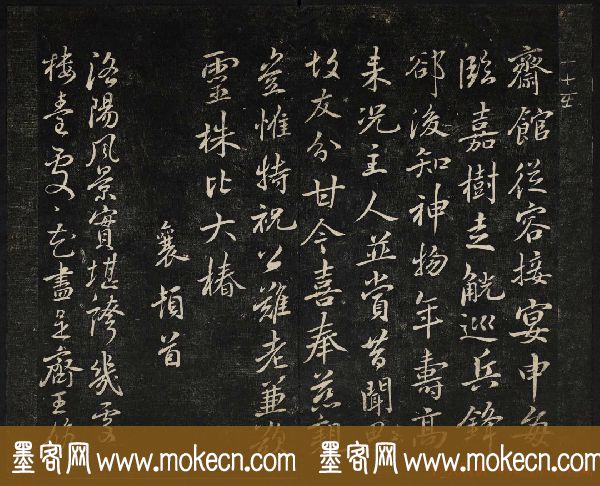 二十五
齋館從容接宴申每
臨嘉樹走觥巡兵鋒
郤後知神物年壽高
来況主人並賞昔聞
故友分甘今喜奉慈親
豈惟特祝公難老兼
靈株比大椿
襄頓首
洛陽風景實堪誇幾處
樓臺處〻花盡是齊王
墨客网 www.mokecn.com 墨客网 www.mokecn.com